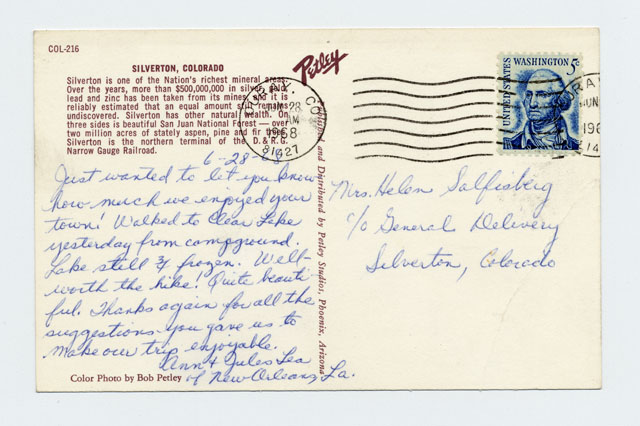 COL-216
SILVERTON, COLORADO
Silverton is one of the Nation's richest mineral areas.
Over the years, more than $500,000,000 in silver, gold,
lead and zinc has been taken from its mines and it is
reliably estimated that an equal amount still remains
undiscovered. Silverton has other natural wealth. On
three sides is beautiful San Juan National Forest — over
two million acres of stately aspen, pine and fir trees.
Silverton is the northern terminal of the D. & R.G.
Narrow Gauge Railroad.
Petley
OURAY, CO
JUN 28
AM
1968
81427
UNITED STATES
WASHINGTON 5c
6-28-68
Just wanted to let you know
how much we enjoyed your
town! Walked to Clear Lake
yesterday from campground.
Lake still ¾ frozen. Well-
worth the hike! Quite beauti
ful. Thanks again for all the
suggestions you gave us to
make our trip enjoyable.
Ann & Jules Lea
of New Orleans, La.
Color Photo by Bob Petley
and Distributed by Petley Studios, Phoenix, Arizona
Mrs. Helen Salfisberg
c/o General Delivery
Silverton, Colorado